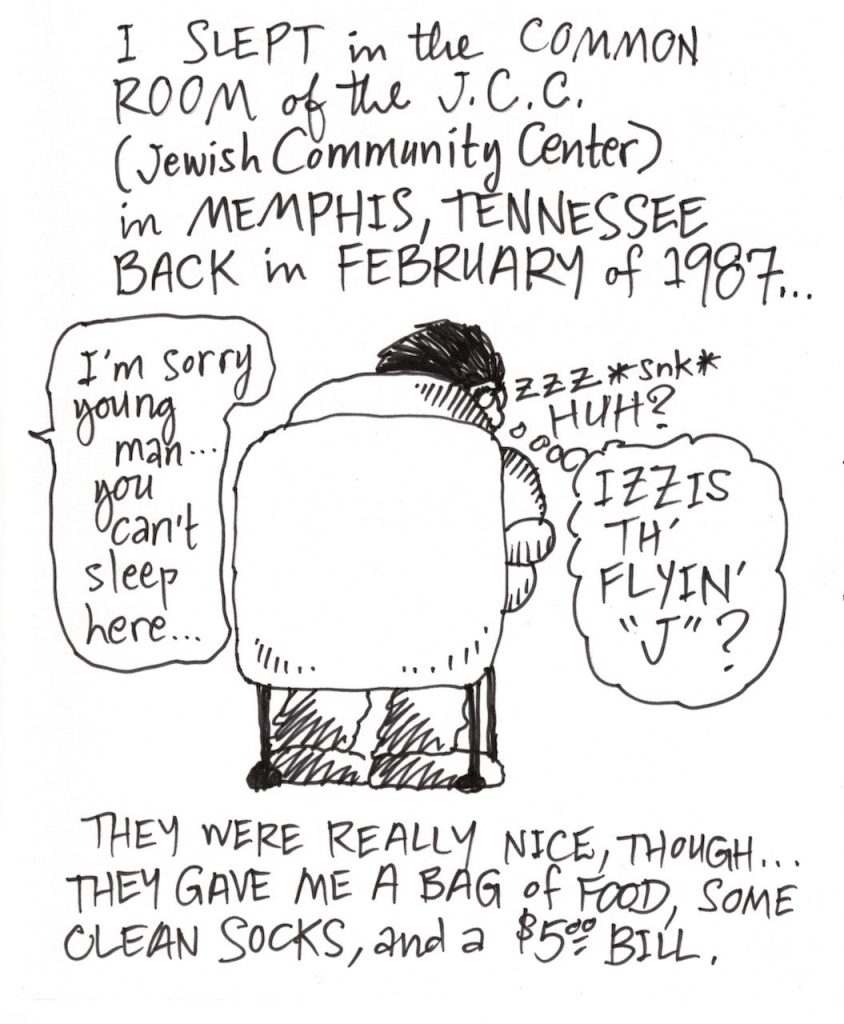 I SLEPT in the COMMON
ROOM of the J.C.C.
(Jewish Community Center)
in MEMPHIS, TENNESSEE
BACK in FEBRUARY of 1987...
I'm sorry
young
man...
you
can't
sleep
here...
ZZZ *snk*
HUH?
IZZIS
TH'
FLYIN'
"J"?
THEY WERE REALLY NICE, THOUGH...
THEY GAVE ME A BAG of FOOD, SOME
CLEAN SOCKS, and a $5.00 BILL.